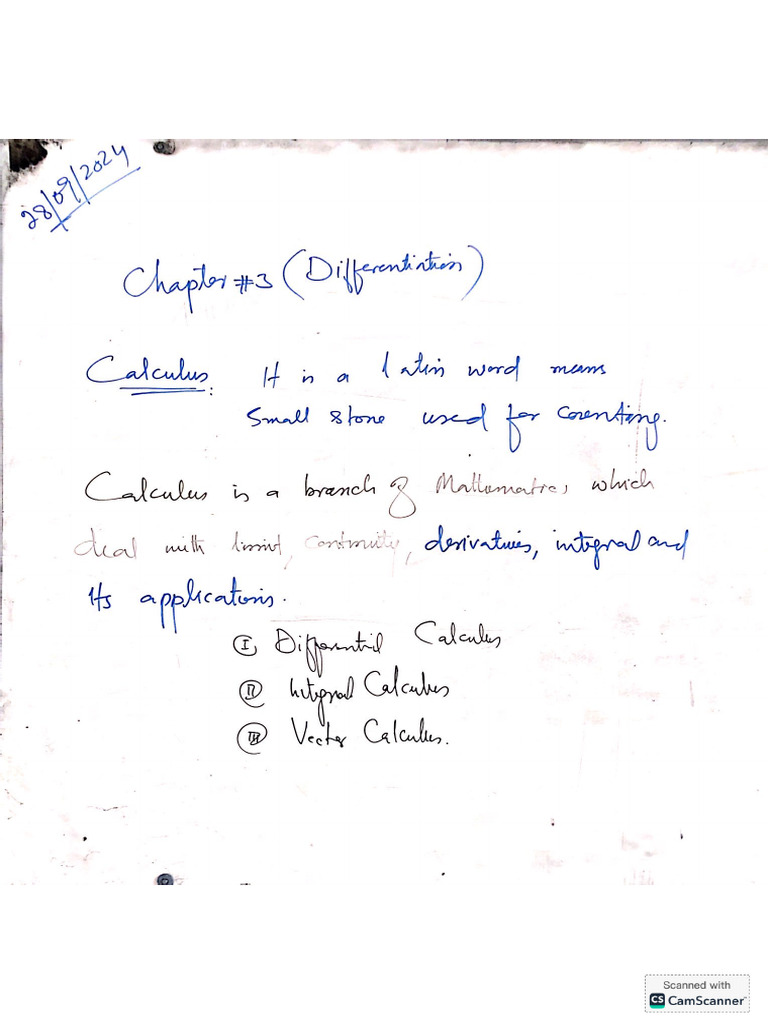 28/09/2024
Chapter #3 (Differentiation)
Calculus: It is a latin word means
Small stone used for counting.
Calculus is a branch of Mathematics which
deal with limit, continuity, derivatives, integral and
Its applications.
I Differential Calculus
II Integral Calculus
III Vector Calculus.
Scanned with
CS CamScanner